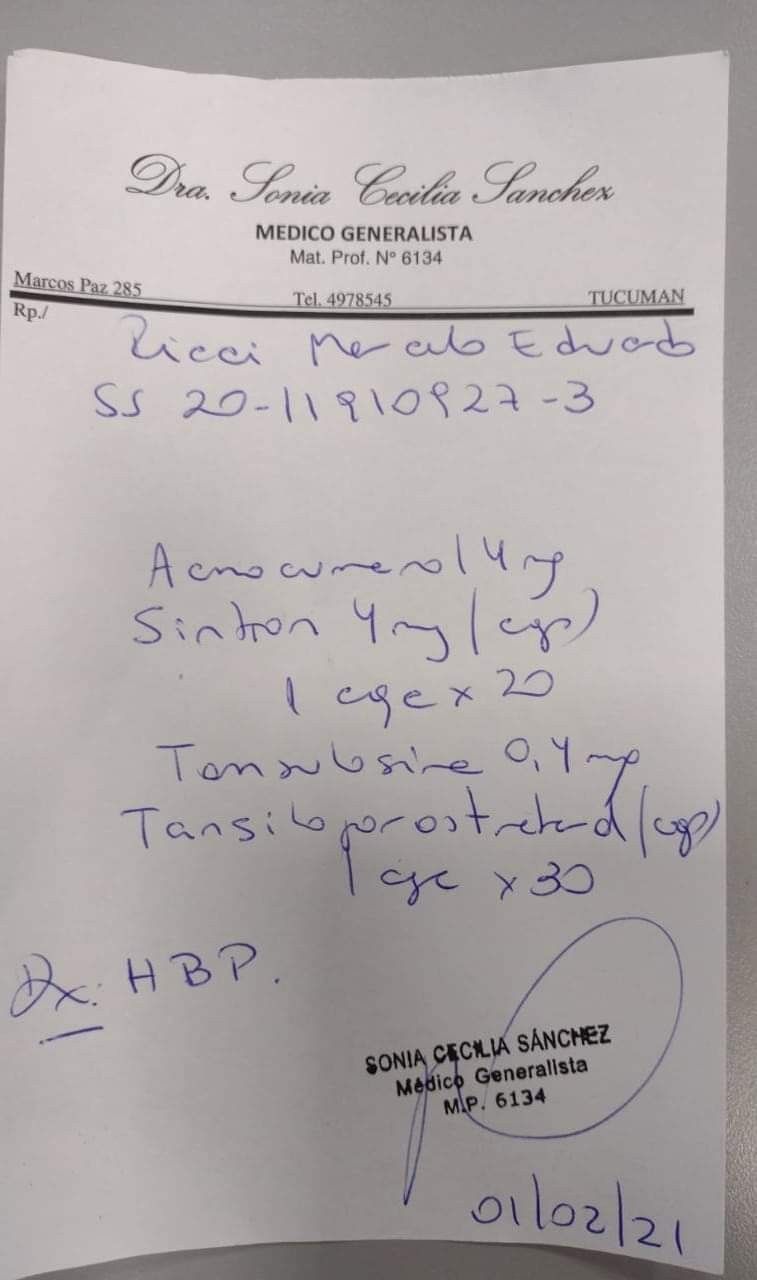 Dra. Sonia Cecilia Sanchez
MEDICO GENERALISTA
Mat. Prof. N° 6134
Marcos Paz 285 Tel. 4978545 TUCUMAN
Rp./
Ricci Marcelo Eduardo
SS 20-11910927-3
Acenocumarol 4 mg
Sintron 4 mg (cap)
1 caje x 20
Tamsulosina 0,4 mg
Tansiloprostretard (cap)
1 cje x 30
Dx: HBP.
SONIA CECILIA SÁNCHEZ
Médico Generalista
M.P. 6134
01/02/21